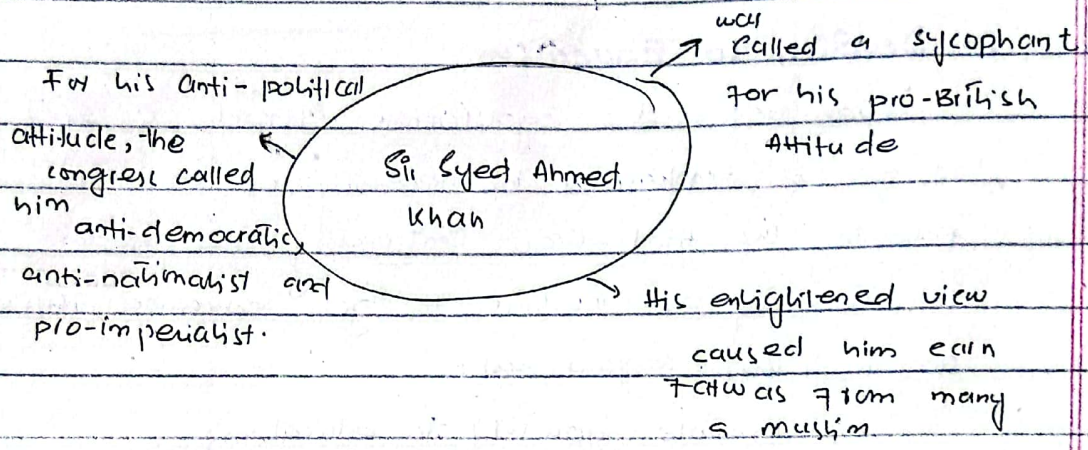 Sir Syed Ahmed
Khan
was
called a sycophant
For his pro-British
Attitude
For his anti-political
attitude, the
congress called
him
anti-democratic,
anti-nationalist and
pro-imperialist.
His enlightened view
caused him earn
Fatwas from many
a muslim